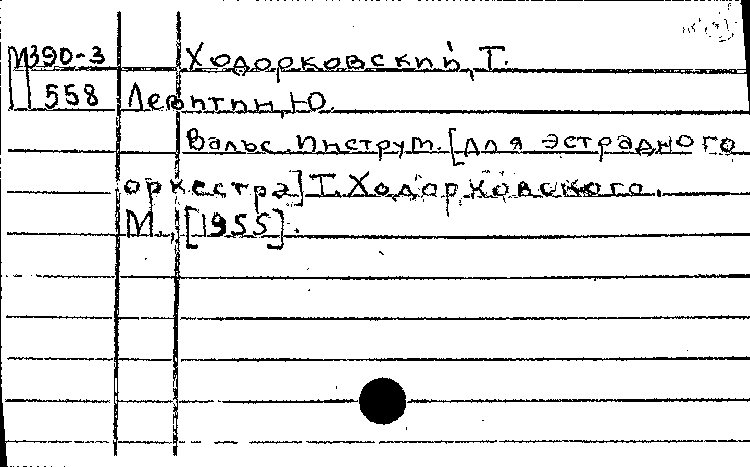 М390-3 Ходорковский, Т.
558 Левитин, Ю.
Вальс. Инструм. [для эстрадного
оркестра] Т. Ходорковского.
М., [1955].